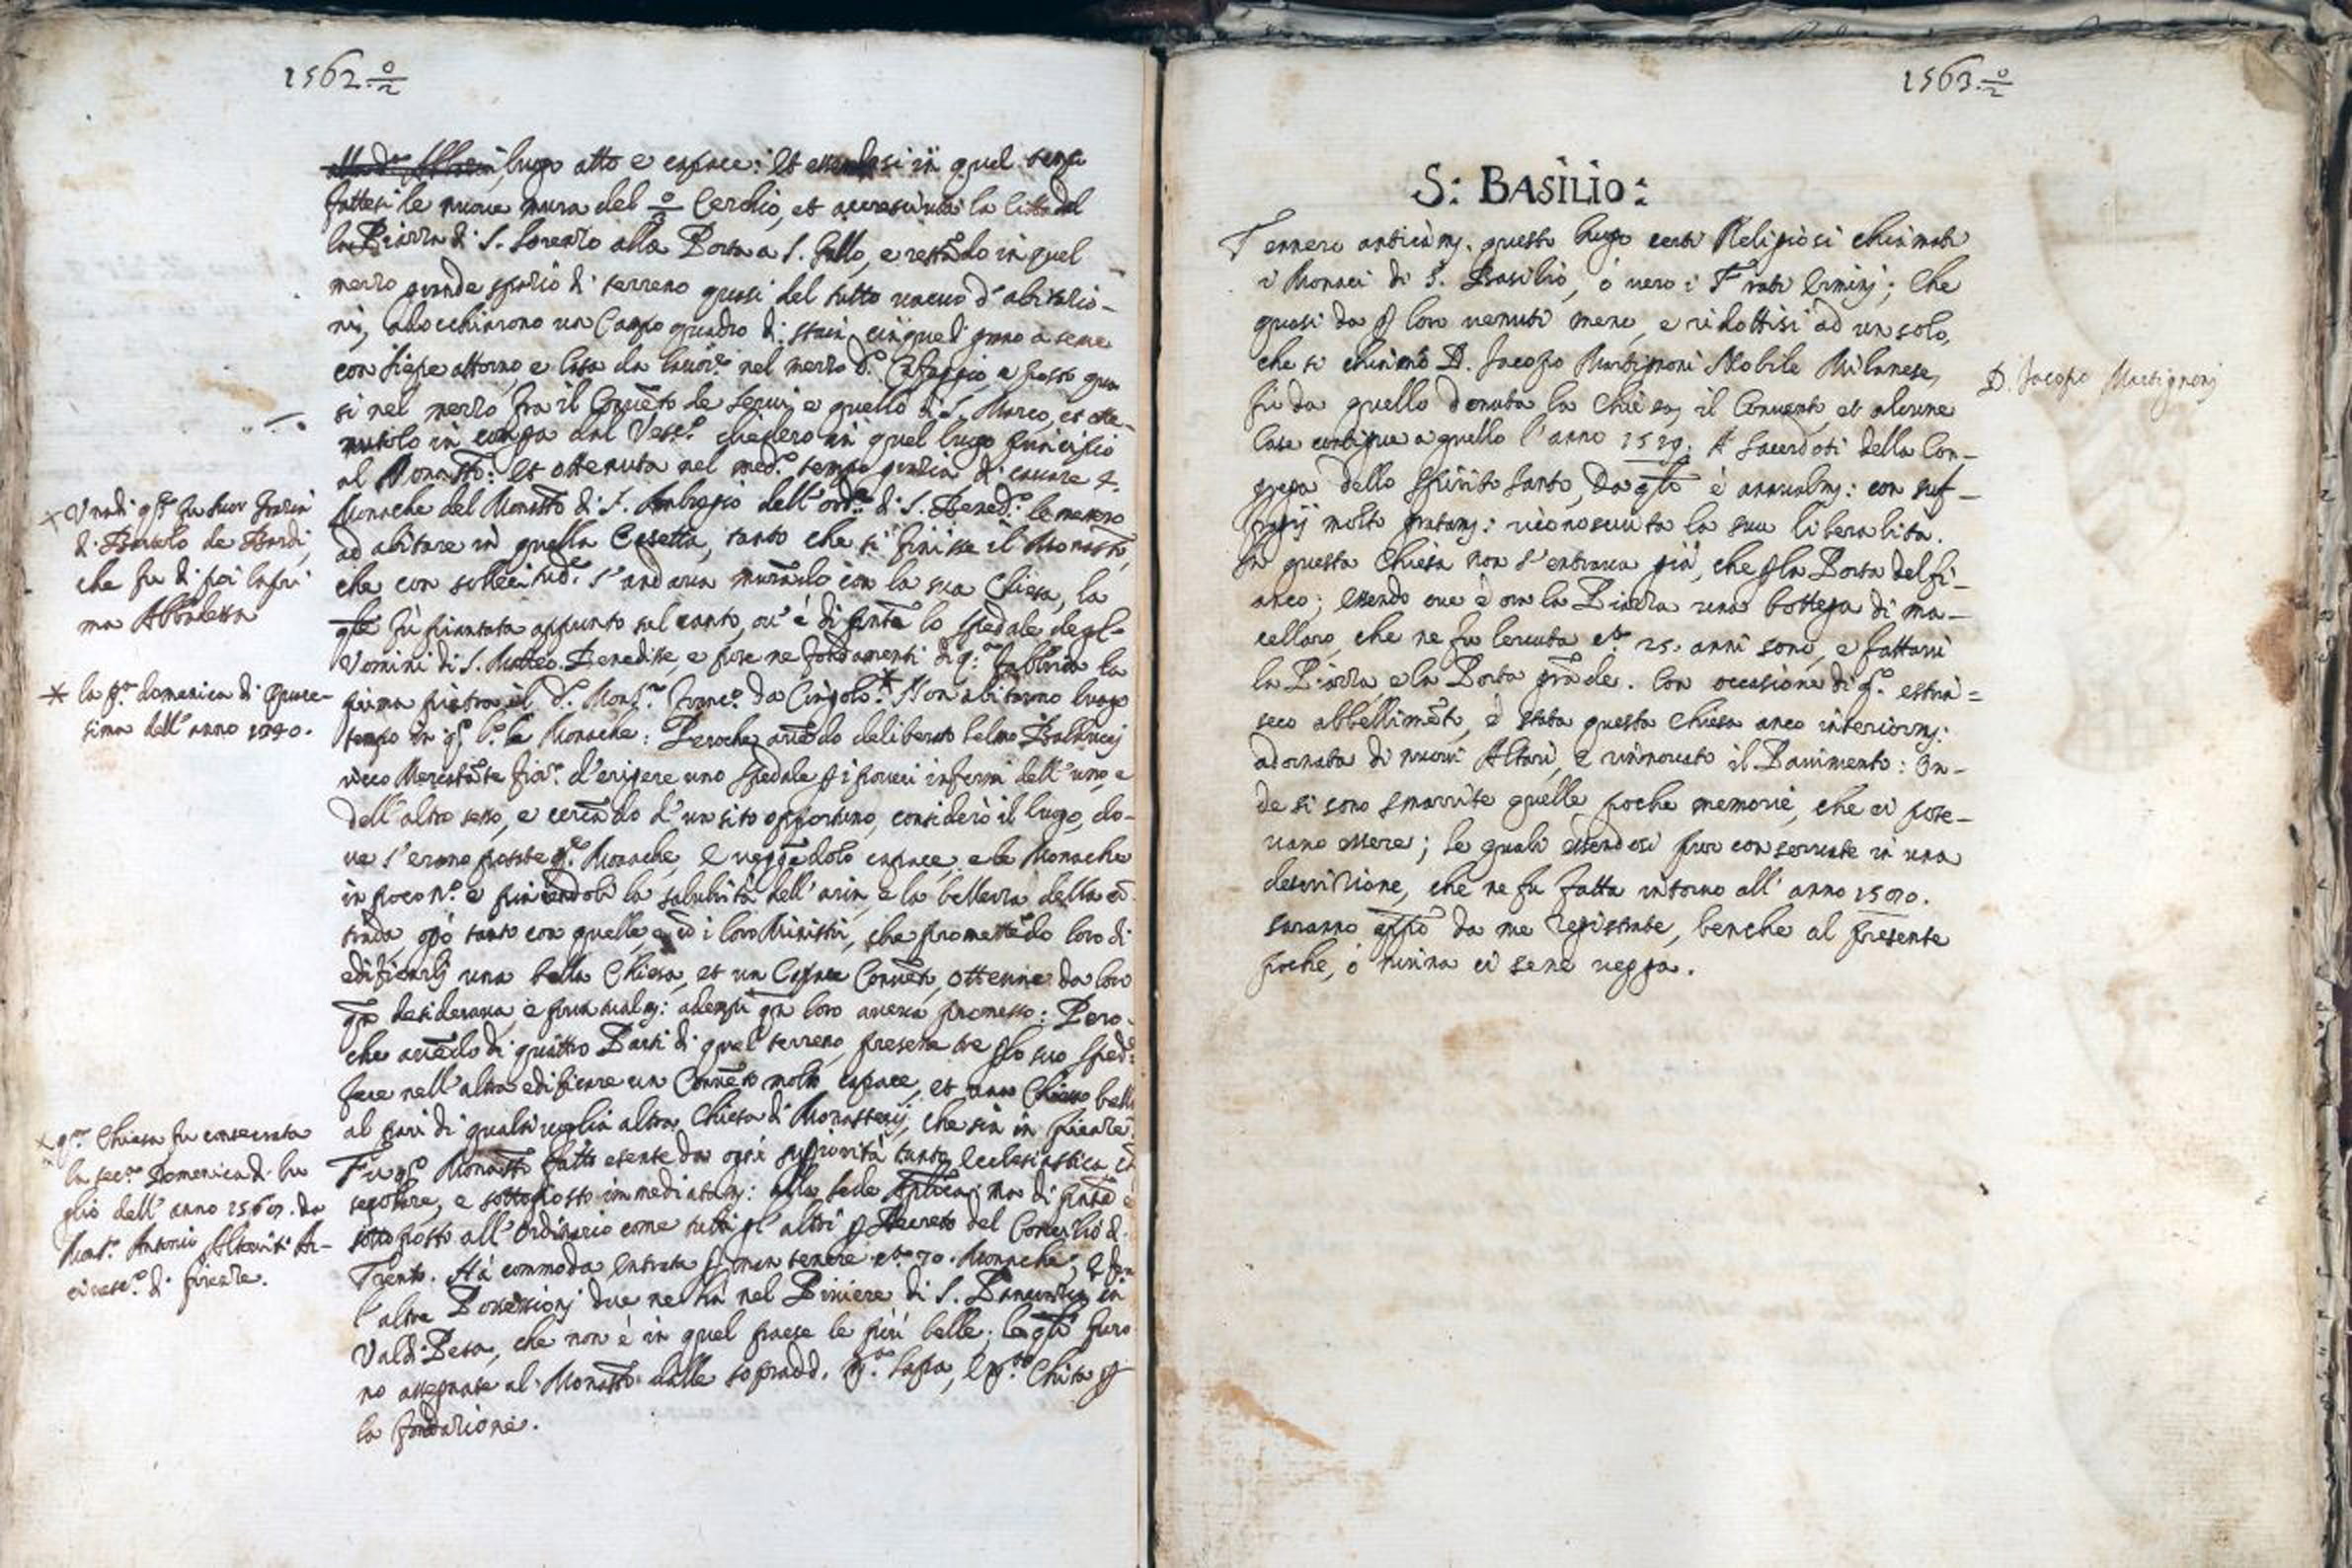 1562. 0/2
luogo atto e capace: Et essendosi in quel tempo
fattesi le nuove mura del 0/2 Cerchio, et accresciuta la Città dal
la Piazza di S. Lorenzo alla Porta a S. Gallo, e restãdo in quel
mezzo grande spazio di terreno quasi del tutto vacuo d'abitazio-
ni, adocchiarono un Campo quadro di staia cinque di grano a seme
con siepe attorno, e Casa da lavor.e nel mezzo d.o Cafaggio, e posto qua
si nel mezzo fra il Convẽto de Servi, e quello di S. Marco, et otte-
nutolo in compra dal Vesc.o chiesero in quel luogo principio
al Monast.o: Et ottenuta nel med.o tempo grazia di cavare 4.
Monache del Monast.o di S. Ambrogio dell'ord.e di S. Bened.o le messero
ad abitare in quella Casetta, tanto che si finisse il Monast.o,
che con sollecitud.e s'andava murãdo con la sua Chiesa, la
qle fù piantata appunto sul canto, ov'è di pñte lo spedale degl'
Uomini di S. Matteo. Benedisse, e pose ne fõdamenti di q.a fabbrica la
prima pietra il d.o Mons.r Franc.o da Cingolo.* Non abitarono lungo
tempo in q.o l.o le Monache: Peroche avẽdo deliberato Lelmo Balducci
ricco Mercatãte Fior.o d'erigere uno spedale p i poveri infermi dell'uno, e
dell'altro sesso, e cercãdo d'un sito opportuno, considerò il luogo, do-
ve s'erano poste q.e Monache, e veggẽdolo capace, e le Monache
in poco n.o e piacendoli la salubrità dell'aria, e la bellezza della cõ
trada, oprò tanto con quelle, e cõ i loro Ministri, che promettẽdo loro di
edificarli una bella Chiesa, et un Capace Convẽto, ottenne da loro
qto desiderava, e puntualm.: adempì qto loro aveva promesso: Pero-
che avẽdo di quattro Parti di quel terreno, presene tre p lo suo sped.e
fece nell'altra edificare un Convẽto molto capace, et una Chiesa bella
al pari di qualsivoglia altra Chiesa di Monasterij, che sia in Firẽze.
Fu q.o Monast.o fatto esente da ogni supiorità tanto Ecclesiastica cõ
secolare, e sottoposto immediatam.: alla Sede Aplica, ma di pñte è
sottoposto all'Ordinario come tutti gl'altri p Decreto del Concilio di
Trento. Hà commoda entrata p mantenere c.a 70. Monache; e fra
l'altre Possessionj due ne hà nel Piviere di S. Pancrazio in
Valdi Pesa, che non è in quel paese le più belle; le qli furo
no assegnate al Monast.o dalle sopradd. M.a Lapa, e M.a Chita p
la fõdazione.
× Una di q.e fu Suor Grazia
di Bartolo de Bardi,
che fu di poi la pri
ma Abbadessa
* la p.a domenica di Quare-
sima dell'anno 1390.
× q.a Chiesa fu consecrata
la sec.a Domenica di Lu
glio dell'anno 1567. da
Mons.r Antonio Altoviti Ar-
civesc.o di Firenze.
1563. 0/2
S: BASILIO:
Tennero anticam. questo luogo certi Religiosi chiamati
i Monaci di S. Basilio, ò vero i Frati Erminj; Che
quasi da p loro venuti meno, e ridottisi ad un solo,
che si chiamò D. Jacopo Martignoni Nobile Milanese,
fù da quello donata la Chiesa, il Convento, et alcune
Case contigue a quello l'anno 1529. A Sacerdoti della Con-
grega dello Spirito Santo, da qli è annualm.: con suf-
fragij molto gratam.: riconosciuta la sua liberalita.
In questa Chiesa non s'entrava già, che p la Porta del fi-
anco; essendo ove è ora la Piazza una bottega di ma-
cellaro, che ne fu levata c.a 25. anni sono, e fattavi
la Piazza, e la Porta grãde. Con occasione di q.o estrin=
seco abbellimẽto, è stata questa Chiesa anco interiorm.:
adornata di nuovi Altari, e rinnovato il Pavimento: On-
de si sono smarrite quelle poche memorie, che ci pote-
vano essere; le quali essendosi pur conservate in una
descrizione, che ne fu fatta intorno all'anno 1590.
saranno appo da me registrate, benche al presente
poche, ò niuna ci se ne vegga.
D. Jacopo Martignonj